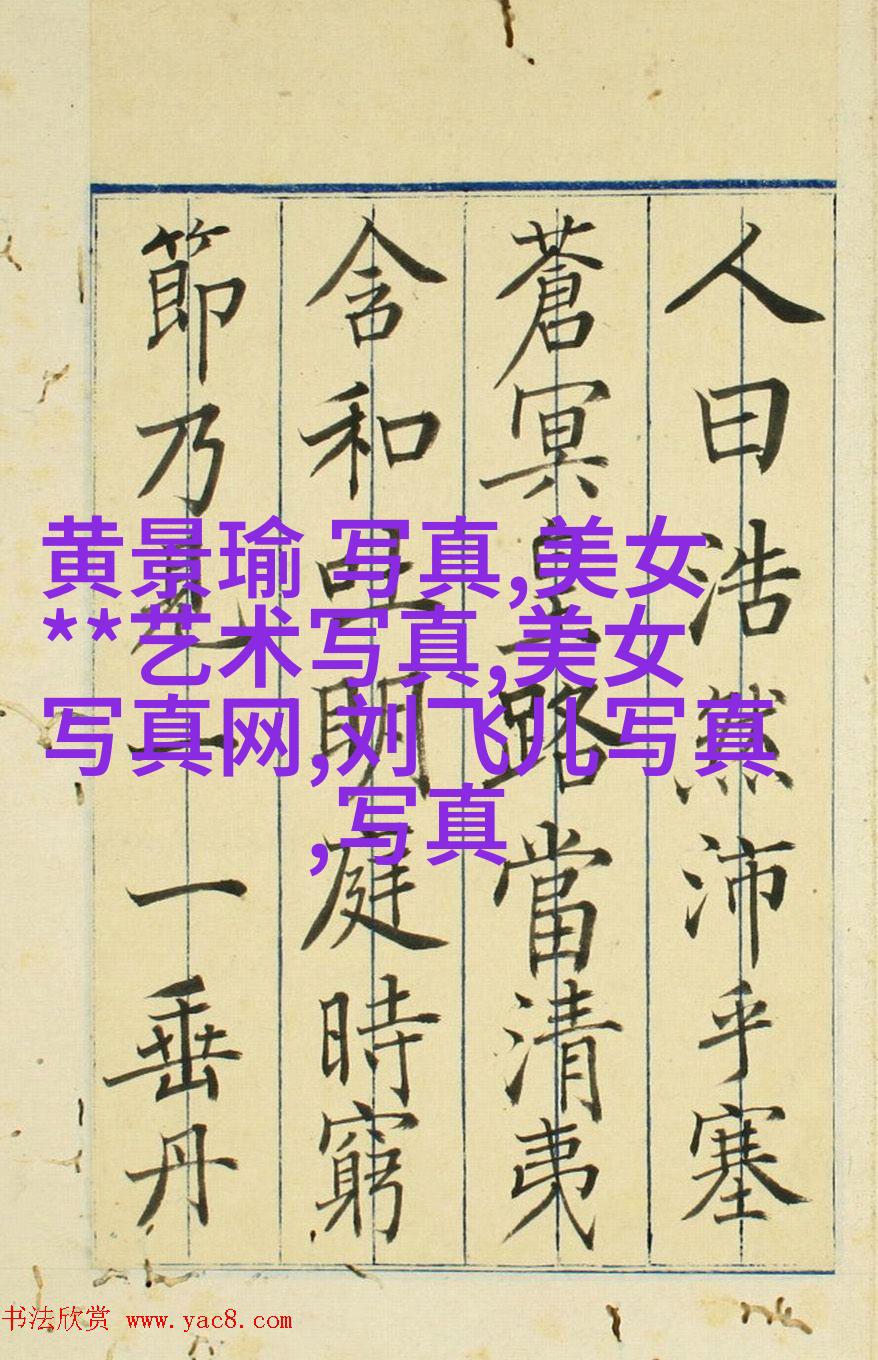 人曰浩然沛乎塞
蒼冥皇路當清夷
含和吐明庭時窮
節乃見一一垂丹
黄景瑜 写真,美女
**艺术写真,美女
写真网,刘飞儿写真
,写真
书法欣赏 www.yac8.com